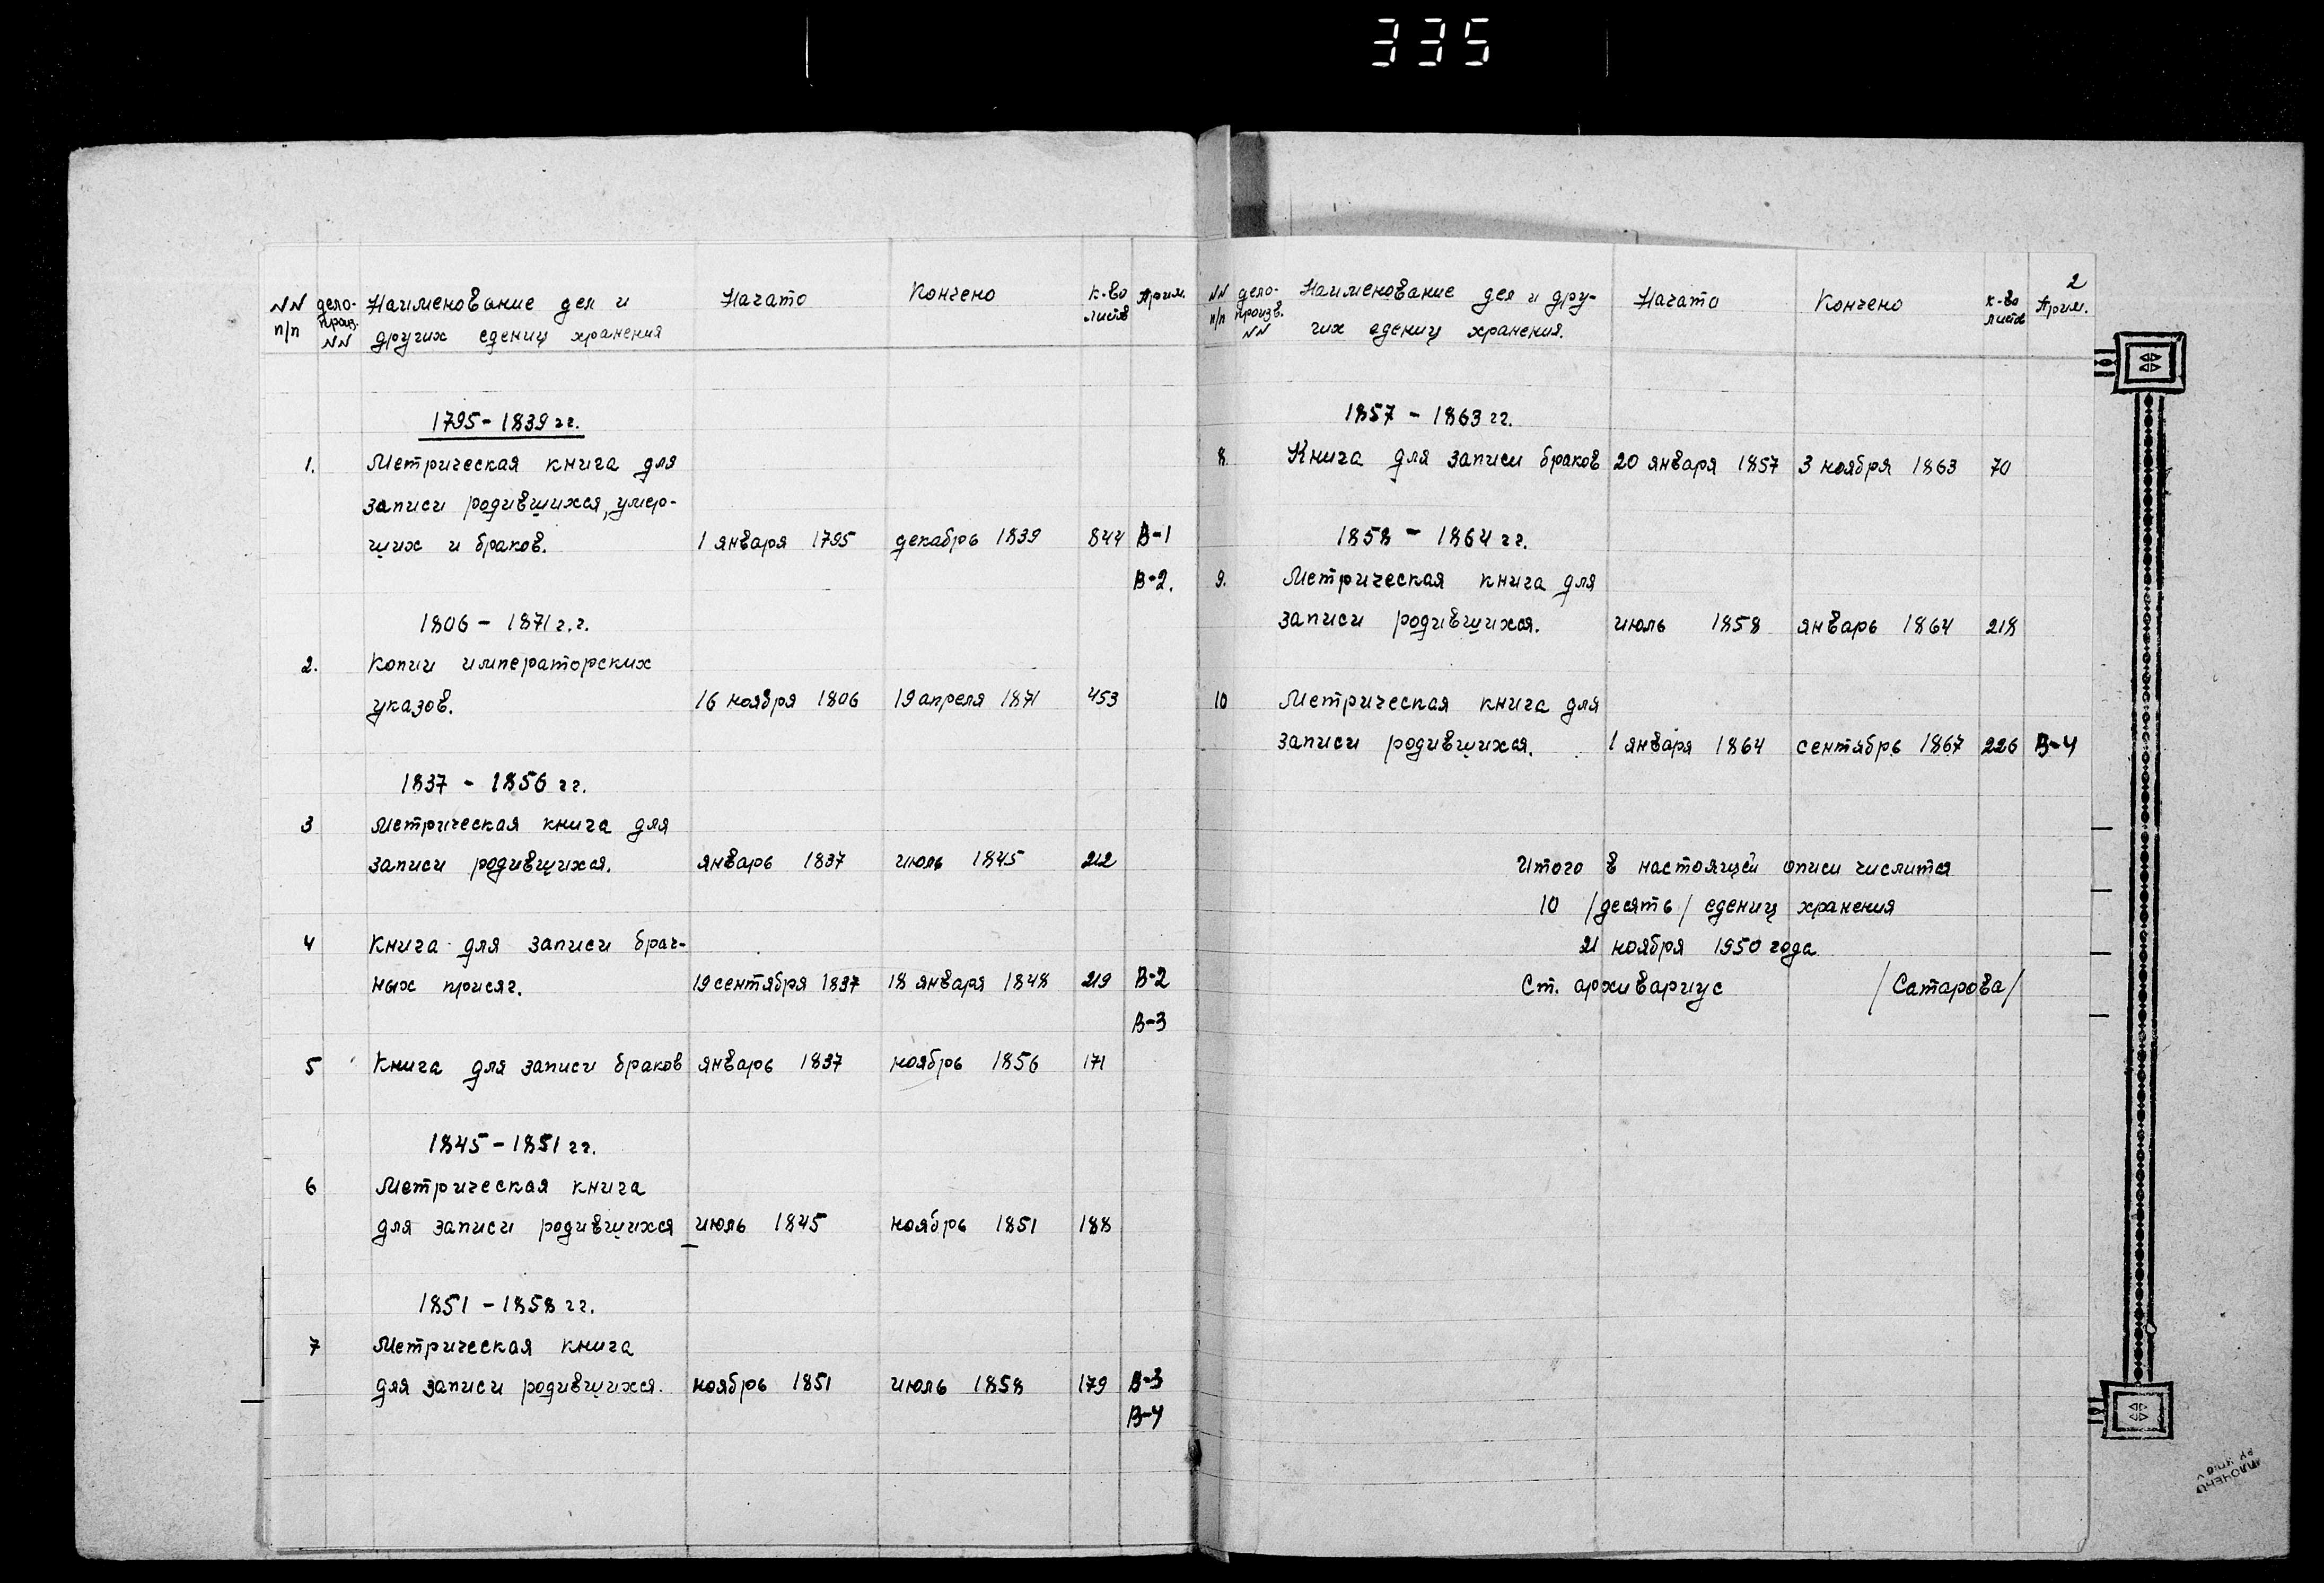 335
NN дело- Наименование дел и Начато Кончено к-во Прим.
п/п произв. других едениц хранения листов
NN
1795 - 1839 гг.
1. Метрическая книга для
записи родившихся, умер-
ших и браков. 1 января 1795 декабрь 1839 844 В-1
В-2.
1806 - 1871 г.г.
2. Копии императорских
указов. 16 ноября 1806 19 апреля 1871 453
1837 - 1856 гг.
3 Метрическая книга для
записи родившихся. январь 1837 июль 1845 212
4 Книга для записи брач-
ных присяг. 19 сентября 1837 18 января 1848 219 В-2
В-3
5 Книга для записи браков январь 1837 ноябрь 1856 171
1845 - 1851 гг.
6 Метрическая книга
для записи родившихся июль 1845 ноябрь 1851 188
1851 - 1858 гг.
7 Метрическая книга
для записи родившихся. ноябрь 1851 июль 1858 179 В-3
В-4
2
NN дело- Наименование дел и дру- Начато Кончено к-во Прим.
п/п произв. гих едениц хранения. листов
NN
1857 - 1863 гг.
8. Книга для записи браков 20 января 1857 3 ноября 1863 70
1858 - 1864 гг.
9. Метрическая книга для
записи родившихся. июль 1858 январь 1864 218
10 Метрическая книга для
записи родившихся. 1 января 1864 сентябрь 1867 226 В-4
Итого в настоящей описи числится
10 /десять/ едениц хранения
21 ноября 1950 года
Ст. архивариус /Сатарова/